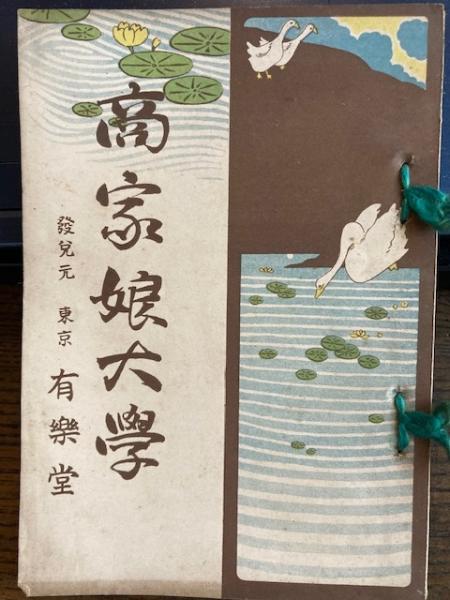 商家娘大學
發兌元 東京 有樂堂